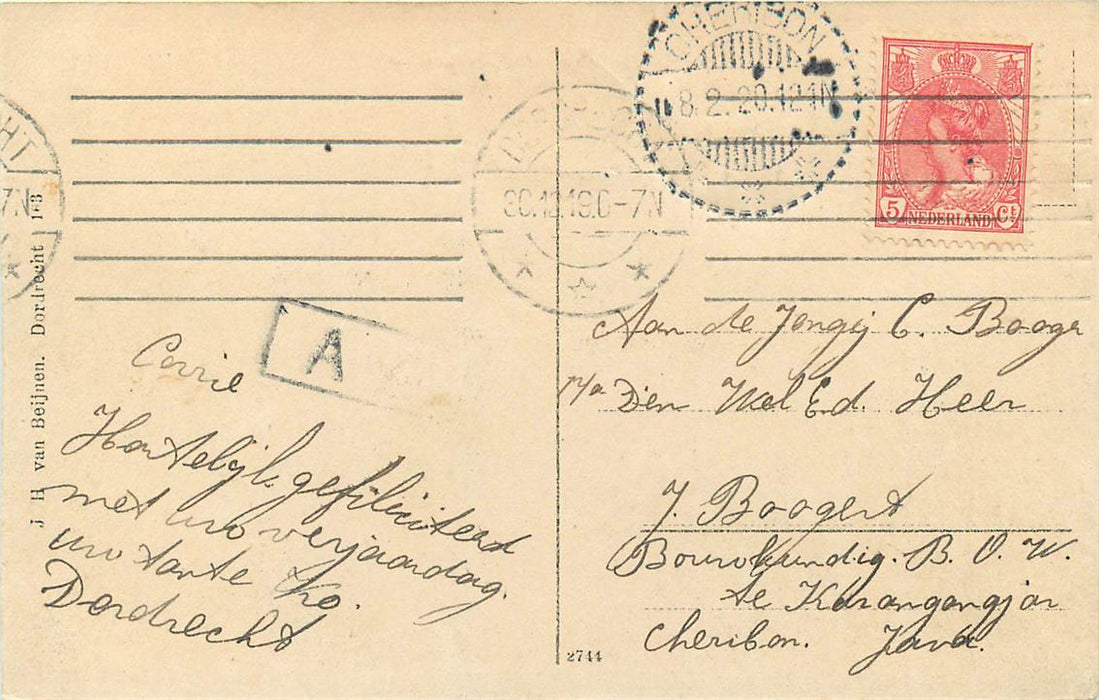 CHERIBON
8.2.20.12-1N
DORDRECHT
30.12.19.6-7N
CHT
7N
5 NEDERLAND Ct
J. H. van Beijnen. Dordrecht
A
Corrie
Hartelijk gefiliciteerd
met uw verjaardag.
uw tante Ko.
Dordrecht
Aan de Jongej C. Booger
p/a Den Wel Ed. Heer
J. Boogert
Bouwkundig. B. O. W.
te Karangangjar
Cheribon. Java.
2744